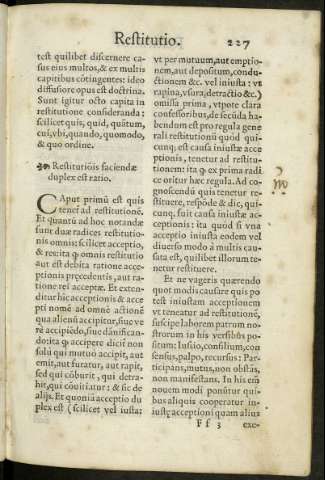 Restitutio. 227
test quilibet discernere ca-
sus eius multos, & ex multis
capitibus cōtingentes: ideo
diffusiore opus est doctrina.
Sunt igitur octo capita in
restitutione consideranda:
scilicet quis, quid, quātum,
cui, vbi, quando, quomodo,
& quo ordine.
Restitutiōis faciendæ
duplex est ratio.
CAput primū est quis
tenetᷣ ad restitutionē.
Et quantū ad hoc notandæ
sunt duæ radices restitutio-
nis omnis: scilicet acceptio,
& res: ita ꝙ omnis restitutio
aut est debita ratione acce-
ptionis præcedentis, aut ra-
tione rei acceptæ. Et exten-
ditur hic acceptionis & acce
pti nomē ad omnē actionē
qua alienū accipitur, siue ve
rè accipiēdo, siue dānifican-
do: ita ꝙ accipere dicit non
solū qui mutuò accipit, aut
emit, aut furatur, aut rapit,
sed qui cōburit, qui detra-
hit, qui cōuitiatur: & sic de
alijs. Et quoniā acceptio du
plex est (scilicet vel iusta:
vt per mutuum, aut emptio-
nem, aut depositum, condu-
ctionem &c. vel iniusta: vt
rapina, vsura, detractio &c.)
omissa prima, vtpote clara
confessoribus, de secūda ha-
bendom est pro regula gene
rali restitutionū quòd qui-
cunq; est causa iniustæ acce
ptionis, tenetur ad restitu-
tionem: ita ꝙ ex prima radi
ce oritur hæc regula. Ad co-
gnoscendū quis tenetur re-
stituere, respōde & dic, qui-
cunq; fuit causa iniustæ ac-
ceptionis: ita quòd si vna
acceptio iniusta eodem vel
diuerso modo à multis cau-
sata est, quilibet illorum te-
netur restituere.
Et ne vageris quærendo
quot modis causare quis po
test iniustam acceptionem
vt teneatur ad restitutionē,
suscipe laborem patrum no-
strorum in his versibus posi-
tum: Iussio, consilium, con
sensus, palpo, recursus: Par-
ticipans, mutus, non obstās,
non manifestans. In his enī
nouem modi ponūtur qui-
bus aliquis cooperatur in-
iustæ acceptioni quam alius
Ff 3 exe-